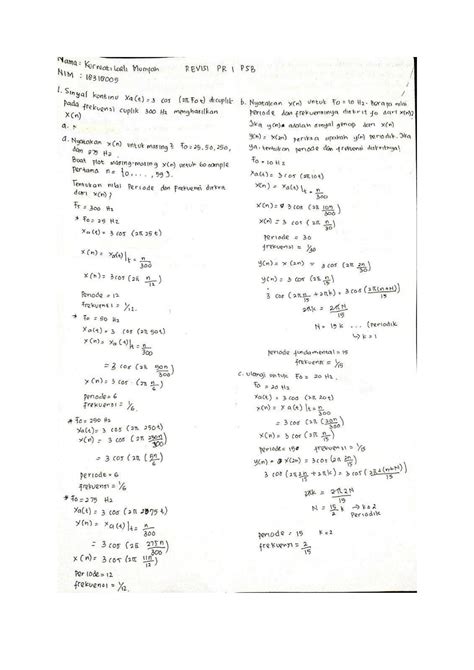 Nama: Kurniati Laili Munyah REVISI PR 1 PSB
NIM : 18318005
1. Sinyal kontinu Xa(t) = 3 cos (2π Fo t) dicuplik
pada frekuensi cuplik 300 Hz menghasilkan
X(n)
a. Nyatakan x(n) untuk masing2 Fo = 25, 50, 250,
dan 275 Hz.
Buat plot masing-masing x(n) untuk 60 sample
pertama n = {0, ..., 59}.
Tentukan nilai Periode dan frekuensi diskrit
dari x(n)?
FT = 300 Hz
* Fo = 25 Hz
Xa(t) = 3 cos (2π 25 t)
x(n) = xa(t)|t = n/300
x(n) = 3 cos (2π n/12)
Periode = 12
frekuensi = 1/12.
* Fo = 50 Hz
Xa(t) = 3 cos (2π 50 t)
x(n) = Xa(t)|t = n/300
= 3 cos (2π 50n/300)
x(n) = 3 cos (2π n/6)
periode = 6
frekuensi = 1/6.
* Fo = 250 Hz
Xa(t) = 3 cos (2π 250 t)
x(n) = 3 cos (2π 250n/300)
= 3 cos (2π 5n/6)
periode = 6
frekuensi = 1/6
* Fo = 275 Hz
Xa(t) = 3 cos (2π 275 t)
x(n) = xa(t)|t = n/300
= 3 cos (2π 275n/300)
x(n) = 3 cos (2π 11n/12)
periode = 12
frekuensi = 1/12.
b. Nyatakan x(n) untuk Fo = 10 Hz. Berapa nilai
periode dan frekuensinya diskrit fo dari x(n)?
Jika y(n) adalah sinyal genap dari x(n)
y(n) = x(2n) periksa apakah y(n) periodik. Jika
ya, tentukan periode dan frekuensi diskritnya!
Fo = 10 Hz
Xa(t) = 3 cos (2π 10 t)
x(n) = Xa(t)|t = n/300
x(n) = 3 cos (2π 10n/300)
x(n) = 3 cos (2π n/30)
periode = 30
frekuensi = 1/30
y(n) = x(2n) = 3 cos (2π 2n/30)
y(n) = 3 cos (2π n/15)
3 cos (2π n/15 + 2πk) = 3 cos (2π(n+N)/15)
2πk = 2πN/15
N = 15k ... (Periodik
↳ k = 1
periode fundamental = 15
frekuensi = 1/15
c. Ulangi untuk Fo = 20 Hz.
Fo = 20 Hz
Xa(t) = 3 cos (2π 20 t)
x(n) = Xa(t)|t = n/300
= 3 cos (2π 20n/300)
= 3 cos (2π n/15)
periode = 15 frekuensi = 1/15
y(n) = x(2n) = 3 cos (2π 2n/15)
3 cos (2π 2n/15 + 2πk) = 3 cos (2π 2(n+N)/15)
2πk = 2π 2N/15
N = 15/2 k ↳ k = 2
Periodik
periode = 15 k = 2
frekuensi = 2/15